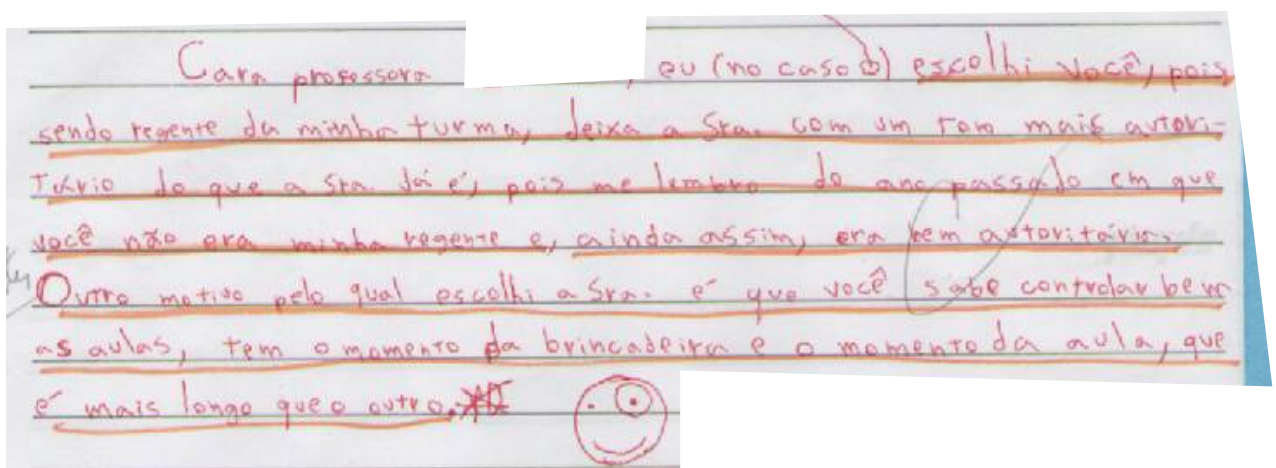 Cara professora , eu (no caso ) escolhi você, pois
sendo regente da minha turma, deixa a Sra. com um tom mais autori-
tário do que a Sra. já é, pois me lembro do ano passado em que
você não era minha regente e, ainda assim, era bem autoritária.
Outro motivo pelo qual escolhi a Sra. é que você sabe controlar bem
as aulas, tem o momento da brincadeira e o momento da aula, que
é mais longo que o outro.